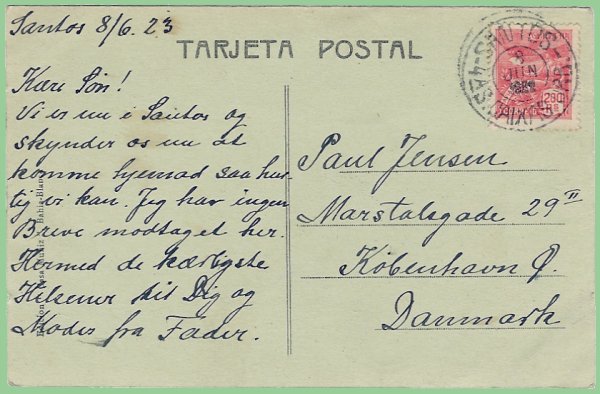 Santos 8/6. 23
TARJETA POSTAL
Kære Søn!
Vi er nu i Santos og
skynder os nu at
komme hjemad saa hur
tig vi kan. Jeg har ingen
Breve modtaget her.
Hermed de kærligste
Hilsener til Dig og
Moder fra Fader.
Paul Jensen
Marstalsgade 29 II
København Ø.
Danmark
SANTOS
8
JUN
200
Bahia-Blanca